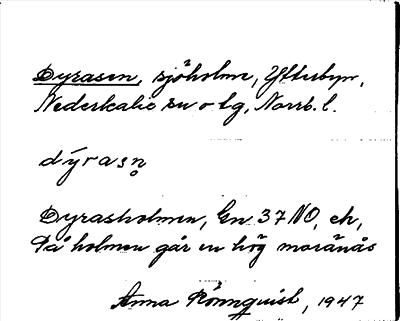 Dyrasen, sjöholme, Ytterbyn,
Nederkalix sn o tg, Norrb. l.
dýrasn̥
Dyrasholmen, Gn 37 NO, ek,
På holmen går en hög moränås
Anna Rönnquist, 1947